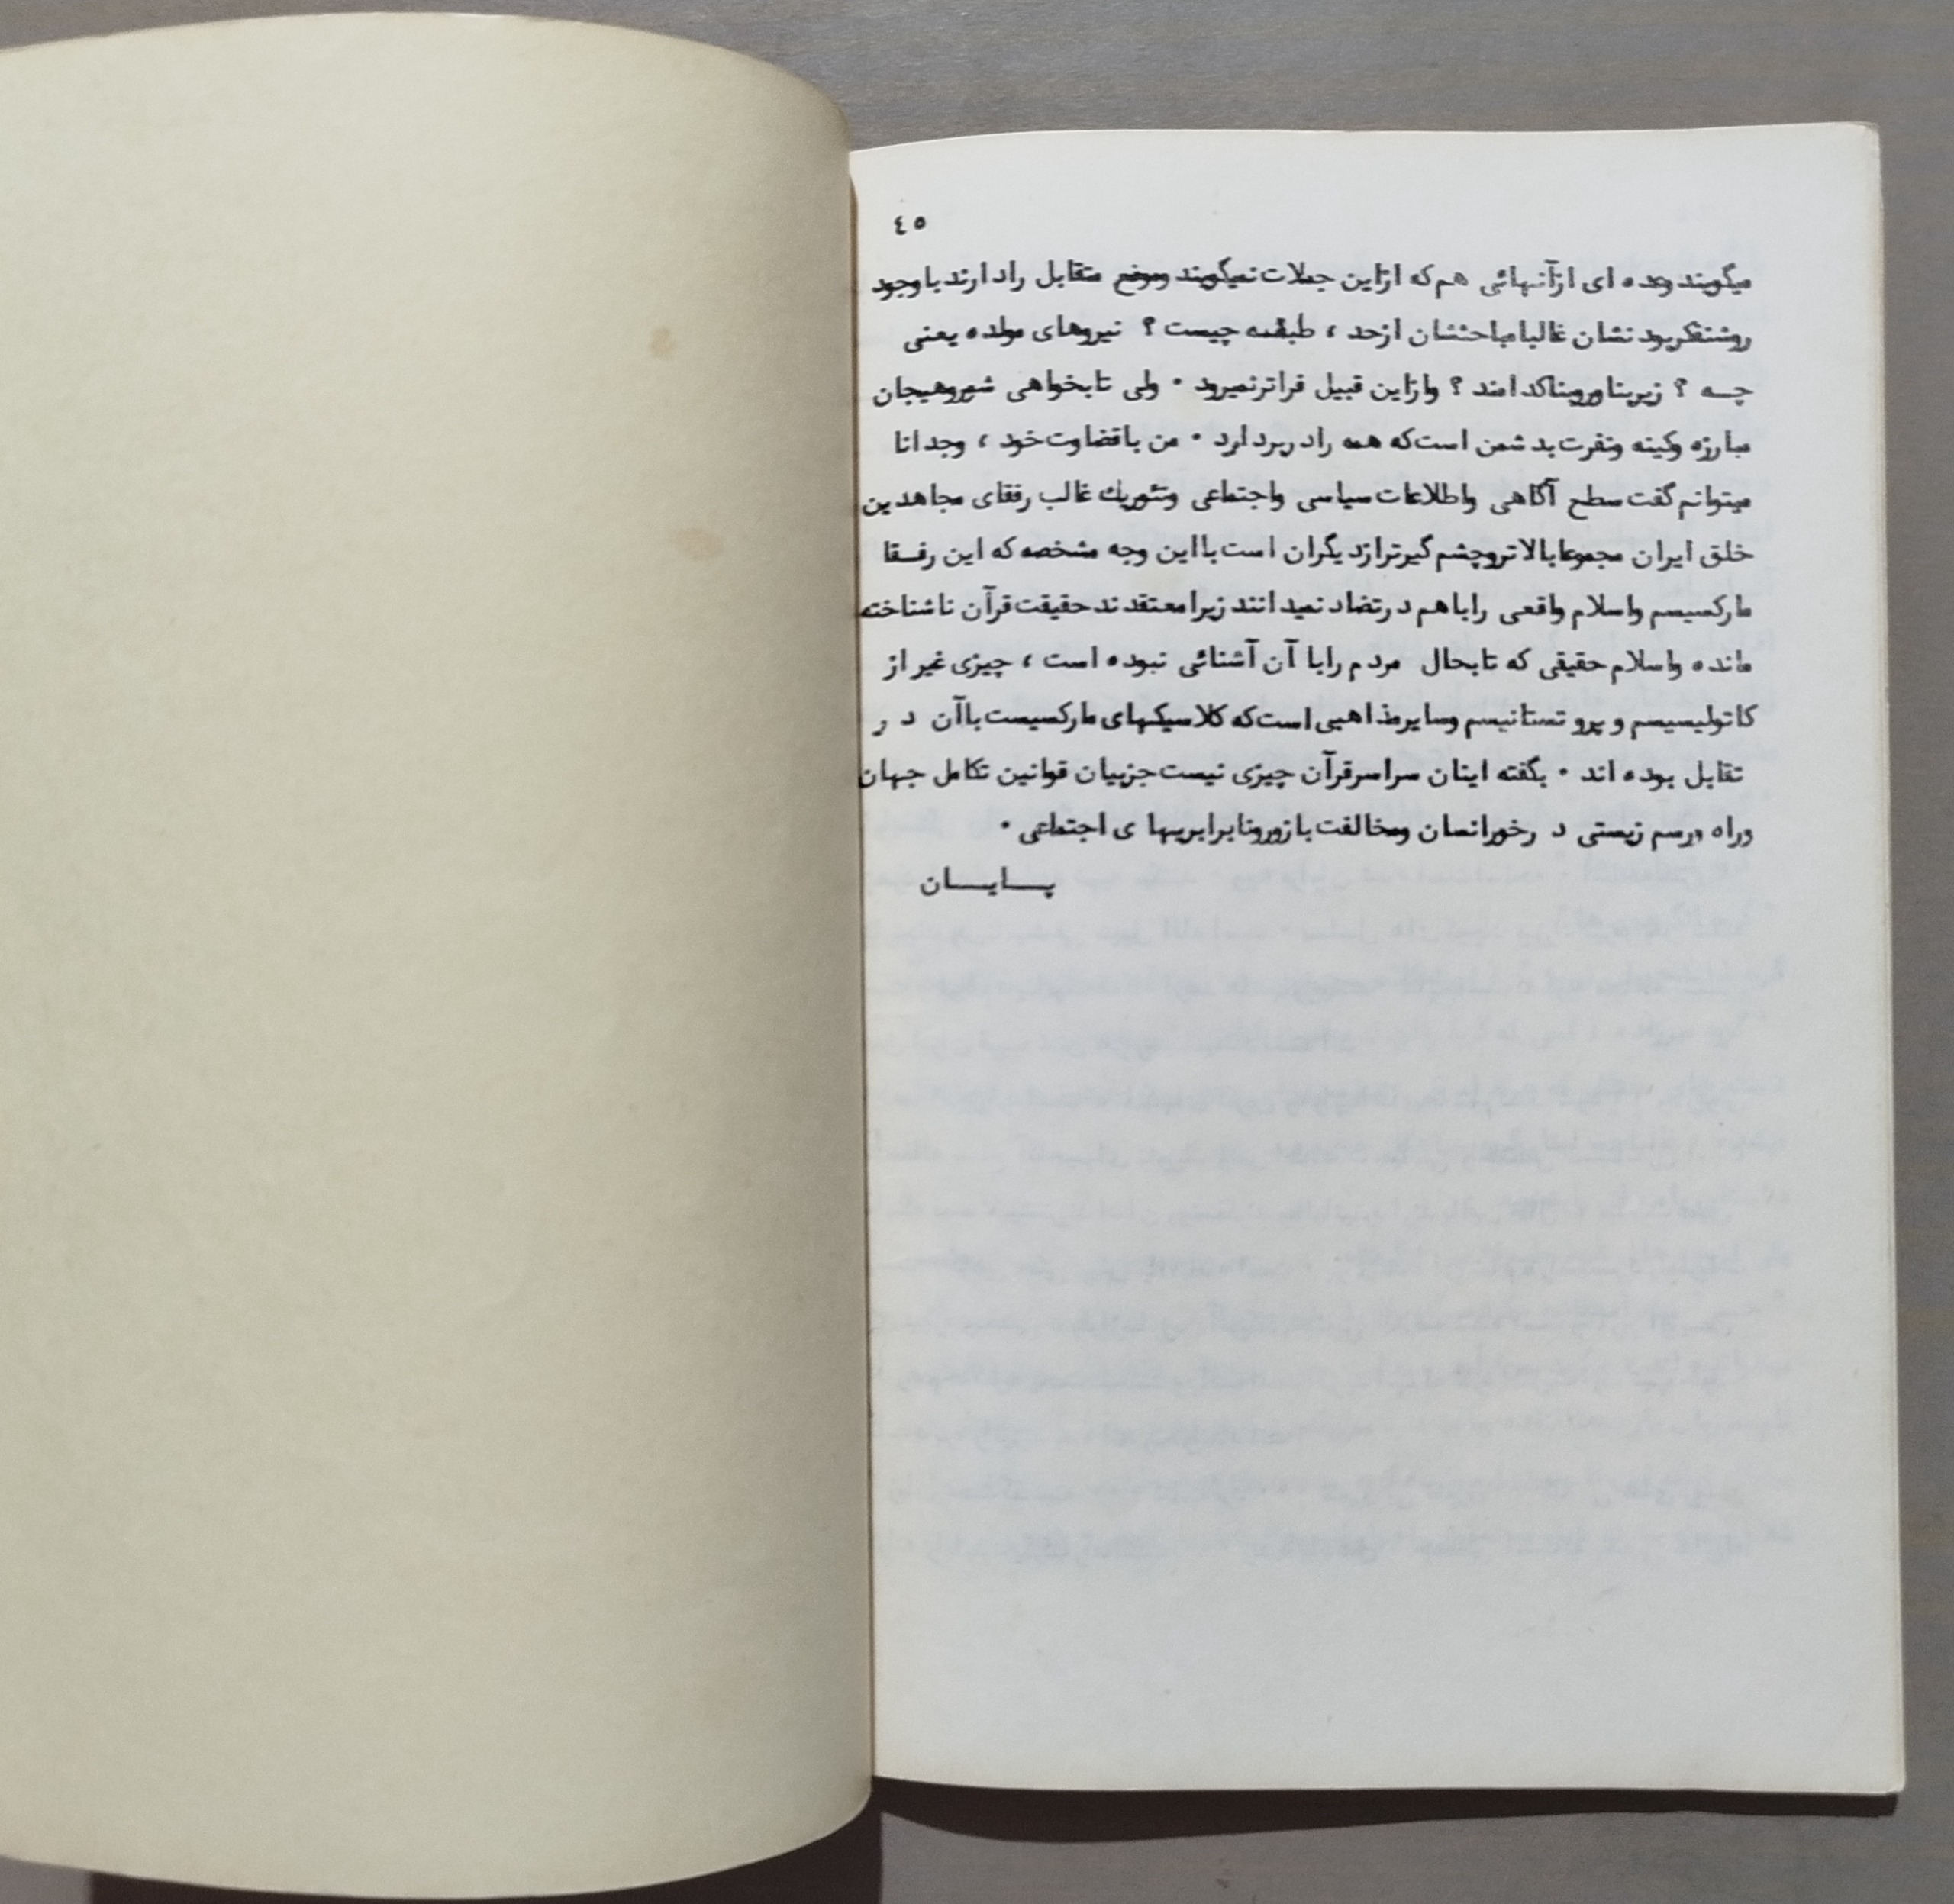 ٤٥
میگویند وعده ای ازآنهائی هم که ازاین جملات نمیگویند وموضع متقابل رادارند باوجود
روشنفکربودنشان غالبامباحثشان ازحد ، طبقه چیست ؟ نیروهای مولده یعنی
چه ؟ زیربناوروبناکدامند ؟ وازاین قبیل فراترنمیرود . ولی تابخواهی شوروهیجان
مبارزه وکینه ونفرت بدشمن است که همه رادربردارد . من باقضاوت خود ، وجدانا
میتوانم گفت سطح آگاهی واطلاعات سیاسی واجتماعی وتئوریك غالب رفقای مجاهدین
خلق ایران مجموعابالاتروچشم گیرترازدیگران است بااین وجه مشخصه که این رفقا
مارکسیسم واسلام واقعی راباهم درتضاد نمیدانند زیرامعتقدند حقیقت قرآن ناشناخته
مانده واسلام حقیقی که تابحال مردم رابا آن آشنائی نبوده است ، چیزی غیر از
کاتولیسیسم و پروتستانیسم وسایرمذاهبی است که کلاسیکهای مارکسیست باآن در
تقابل بوده اند . بگفته اینان سراسرقرآن چیزی نیست جزبیان قوانین تکامل جهان
وراه ورسم زیستی درخورانسان ومخالفت بازورونابرابریهای اجتماعی .
پایان